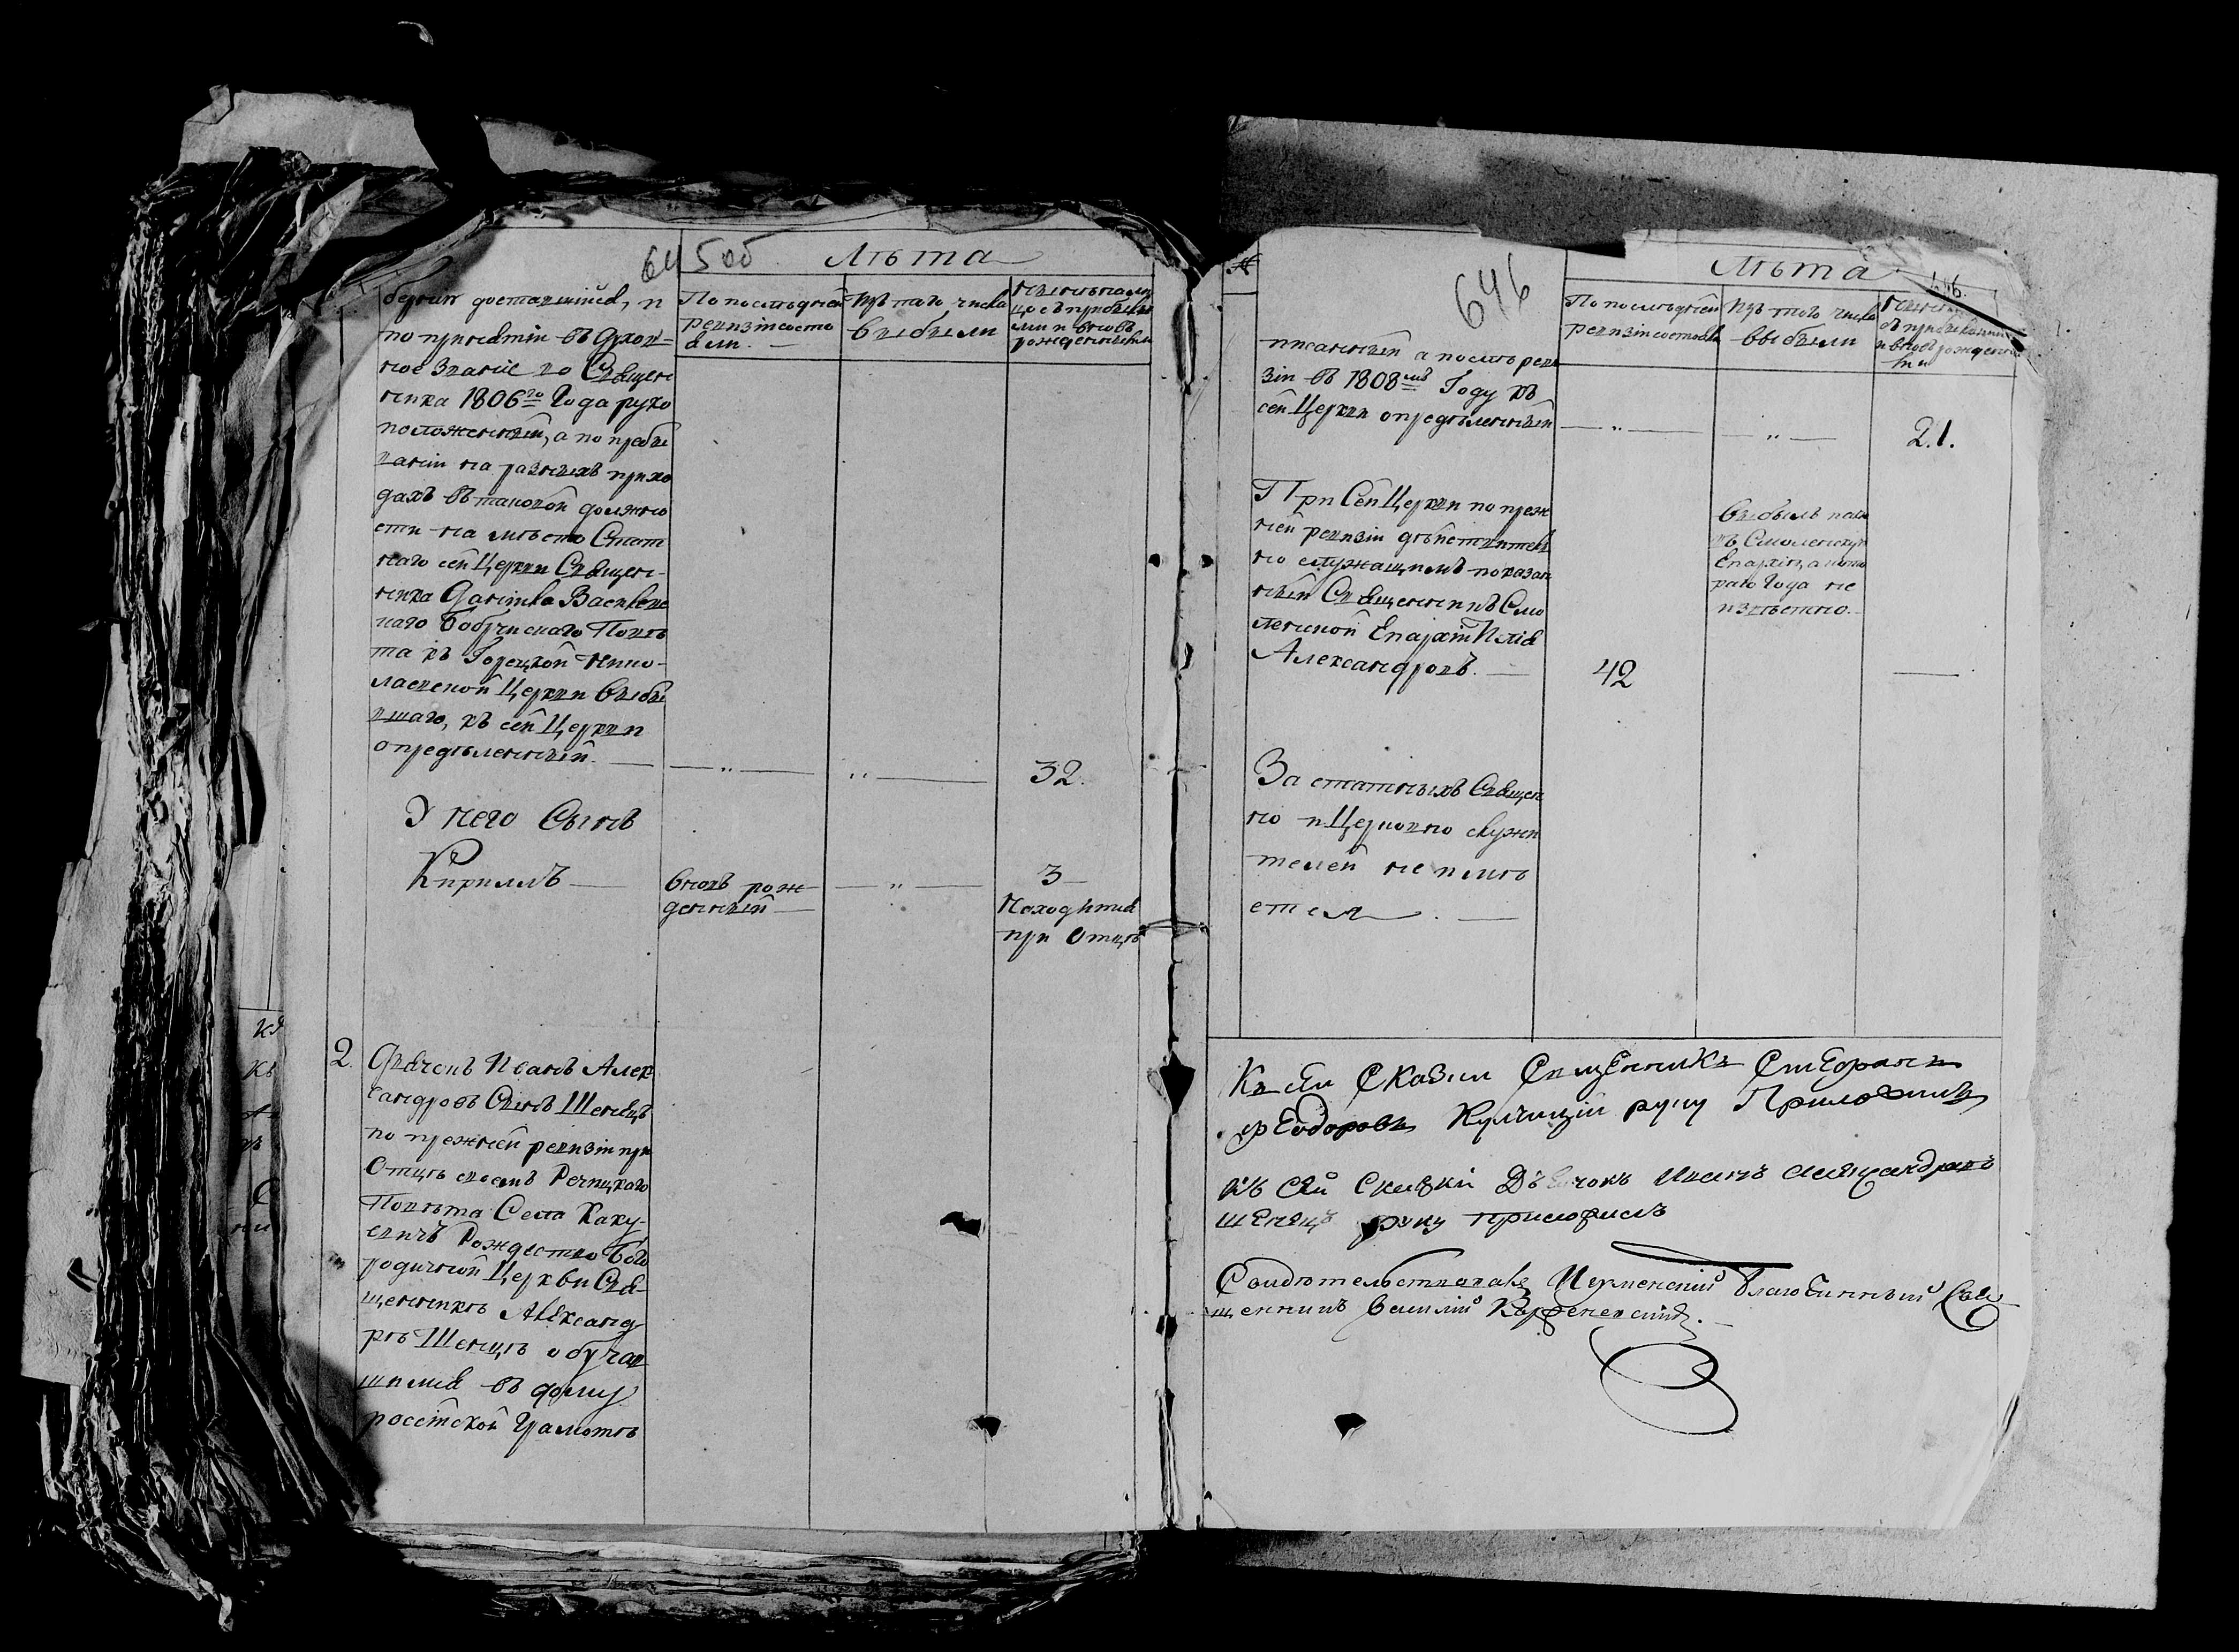 645 об
Лѣта
По последней
ревизіи состо
яли.
Изъ того числа
выбыли
бургии доставшійся, и
по принятіи въ духов-
ное званіе во Священ
ника 1806го Года руко
положенный, а по пребы
ваніи на разныхъ прихо
дахъ въ таковой должно
сти на мѣсто Штат
наго сей Церкви Священ-
ника
Бобруйскаго Повѣ
та къ Горецкой Нико-
лаевской Церкви выбы
вшаго, къ сей Церкви
опредѣленный. —
— „ —
„ —
32.
У него Сынъ
Кириллъ —
вновь рож
денный —
— „ —
3
Находится
при Отцѣ
2.
Дьячокъ Иванъ Алек
сандровъ Сынъ Шенецъ
по прежней ревизіи при
Отцѣ своемъ Речицкаго
Повѣта Села
Рождество Бого
родичной Церкви Свя-
щенникѣ Александ
рѣ Шенцѣ обучав
шимся въ дому
россійской Грамотѣ
646
Лѣта
646.
По последней
ревизіи состояли
Изъ того числа
выбыли
писанный а послѣ реви
зіи въ 1808мъ Году къ
сей Церкви опредѣленный
— „ —
— „ —
21.
При Сей Церкви по преж
ней ревизіи дѣйствитель
но служащимъ показан
ный Священникъ Смо
ленской Епархіи Илія
Александровъ. —
42
выбылъ паки
въ Смоленскую
Епархію, а кото
раго Года не
извѣстно. —
—
За статныхъ Священ
но и Церковно служи
телей не имѣ
ется. —
Къ сей Сказки Священникъ Стефанъ
Феодоровъ Кульчицкій руку Приложилъ
Къ сей Сказки Дьячокъ Иванъ Александровъ
Шенецъ руку приложилъ
Свидѣтельствовалъ Игуменскій благочинный Свя
щенникъ Василій